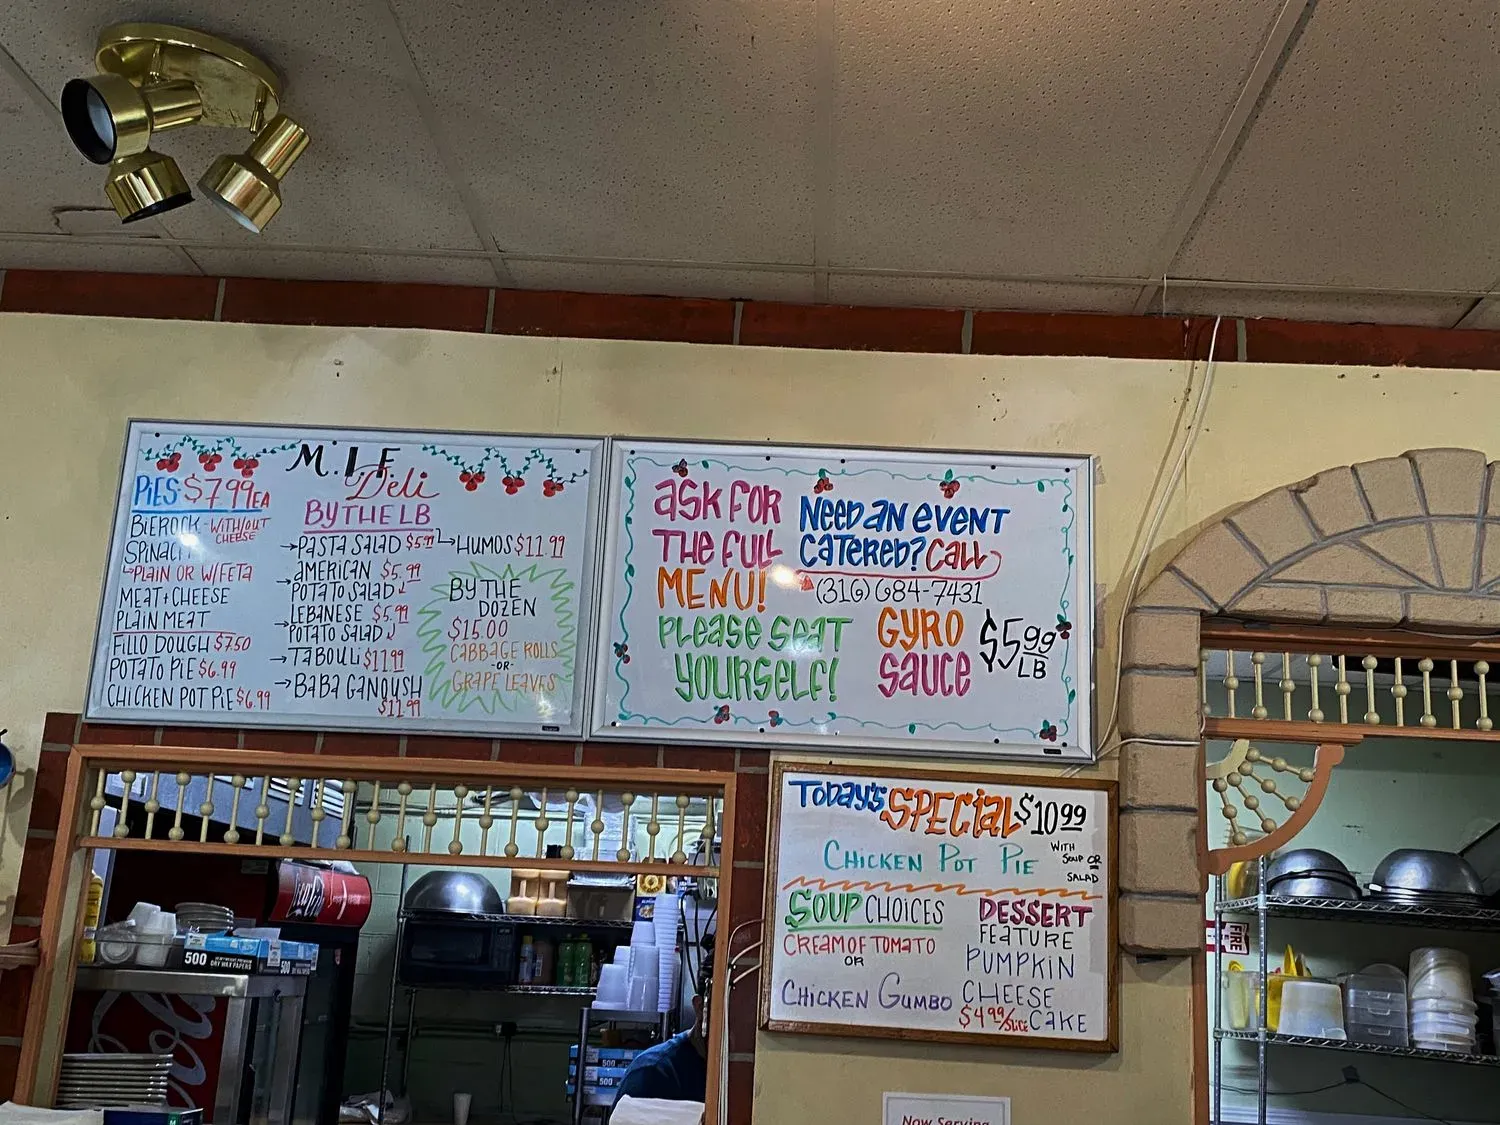 M.I.F
Deli
PIES $7.99 EA
BIEROCK - WITH/OUT
CHEESE
SPINACH
PLAIN OR W/FETA
MEAT + CHEESE
PLAIN MEAT
FILLO DOUGH $7.50
POTATO PIE $6.99
CHICKEN POT PIE $6.99
BY THE LB
→PASTA SALAD $5.99
→AMERICAN $5.99
POTATO SALAD
→LEBANESE $5.99
POTATO SALAD
→TABOULI $11.99
→BABA GANOUSH
$11.99
→HUMOS $11.99
BY THE
DOZEN
$15.00
CABBAGE ROLLS
-OR-
GRAPE LEAVES
ASK FOR
THE FULL
MENU!
PLEASE SEAT
YOURSELF!
NEED AN EVENT
CATERED? CALL
(316) 684-7431
GYRO
SAUCE
$5.99
LB
TODAY'S SPECIAL $10.99
CHICKEN POT PIE
WITH
SOUP OR
SALAD
SOUP CHOICES
CREAM OF TOMATO
OR
CHICKEN GUMBO
DESSERT
FEATURE
PUMPKIN
CHEESE
CAKE
$4.99/SLICE
500
DRY WAX PAPERS
500
500
500
FIRE
Now Serving